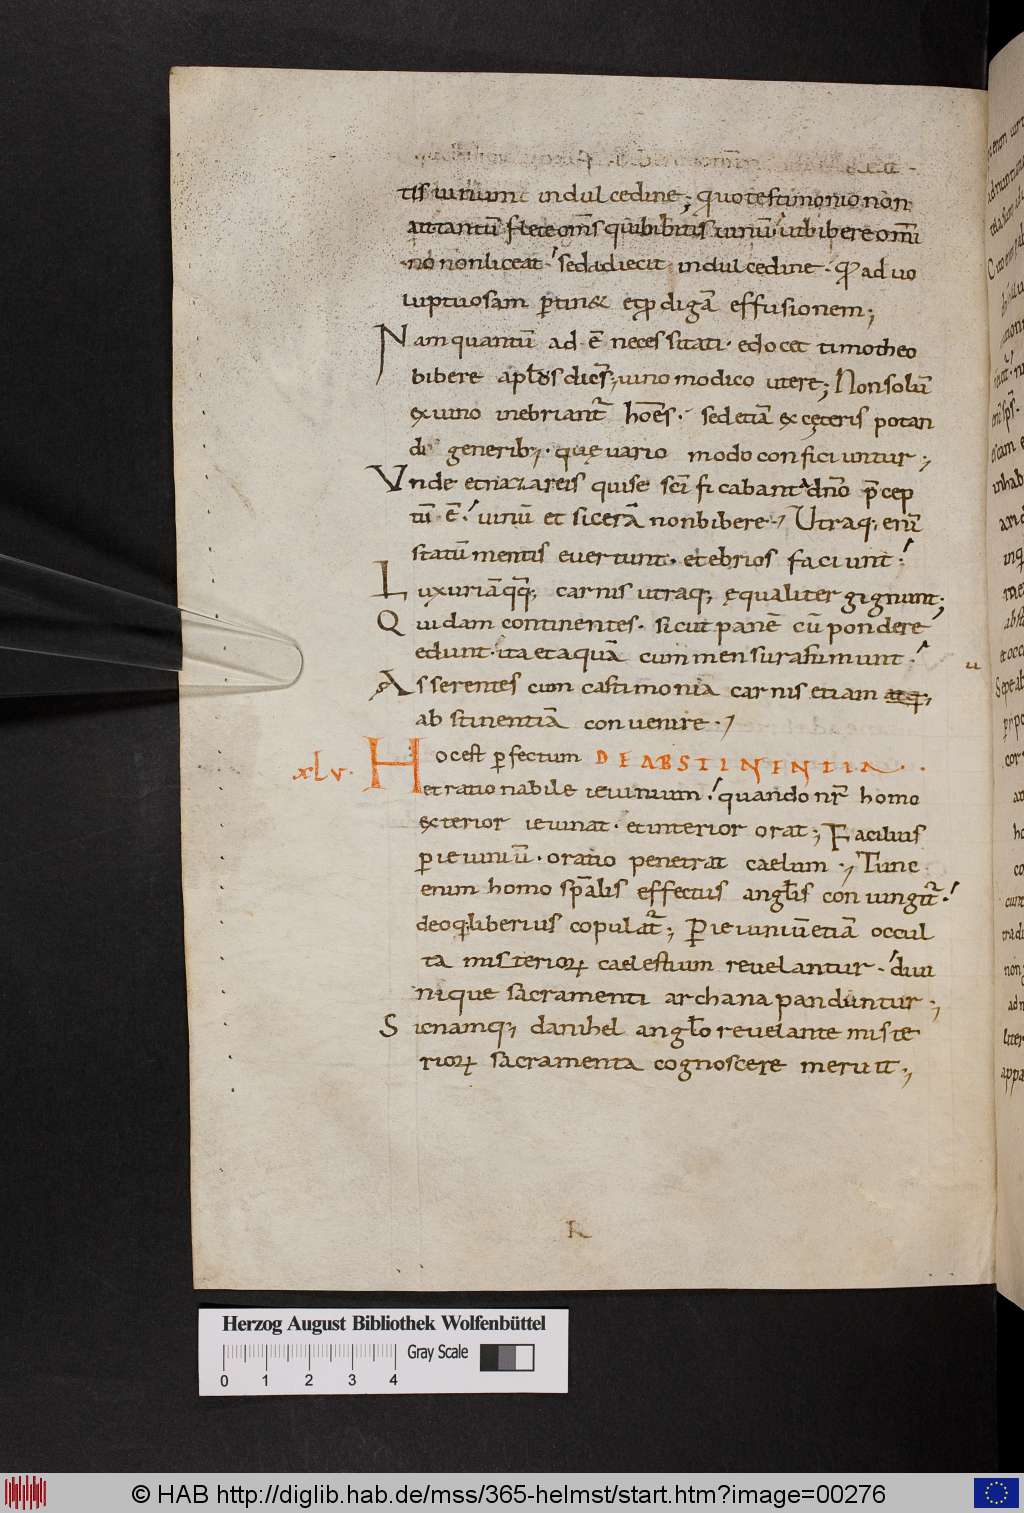 tis uinum indulcedine; quotestimonio non
aut tantũ flete om̃s qui bibitis uinũ utbibere om̃i
no nonliceat sed adiecit indulcedine · qđ ad uo
luptuosam ꝑtin& et ꝓdigã effusionem;
Nam quantũ ad ẽ necessitati · edocet timotheo
bibere apłs dicens; uino modico utere; Nonsolũ
ęx uino inebriant̃ hoẽs · sed etiã ęx cęteris potan
di generib; · quę uario modo conficiuntur;
Vnde et nazareis qui se sc̃ificabant dño p̃cep
tũ ẽ uinũ et sicerã non bibere; Utraq; enĩ
statũ mentis euertunt · et ebrios faciunt
Luxuriãq̃q; carnis utraq; ęqualiter gignunt;
Quidam continentes · sicut panẽ cũ pondere
edunt · ita et aquã cum mensura sumunt
Asserentes cum castimonia carnis etiam atq;
abstinentiã conuenire ·
xlv. Hoc est ꝑfectum DE ABSTINENTIA ·
et rationabile ieiunium quando nr̃ homo
exterior ieiunat · et interior orat; Facilius
ꝑ ieiuniũ · oratio penetrat caelum; Tunc
enim homo sp̃alis effectus angłis coniungit̃
deoq; liberius copulat̃; Ꝑ ieiuniũ etiã occul
ta misterioꝝ caelestium reuelantur · diui
nique sacramenti archana panduntur;
Sicnamq; danihel angło reuelante miste
rioꝝ sacramenta cognoscere meruit;
R
Herzog August Bibliothek Wolfenbüttel
Gray Scale
0 1 2 3 4
© HAB http://diglib.hab.de/mss/365-helmst/start.htm?image=00276